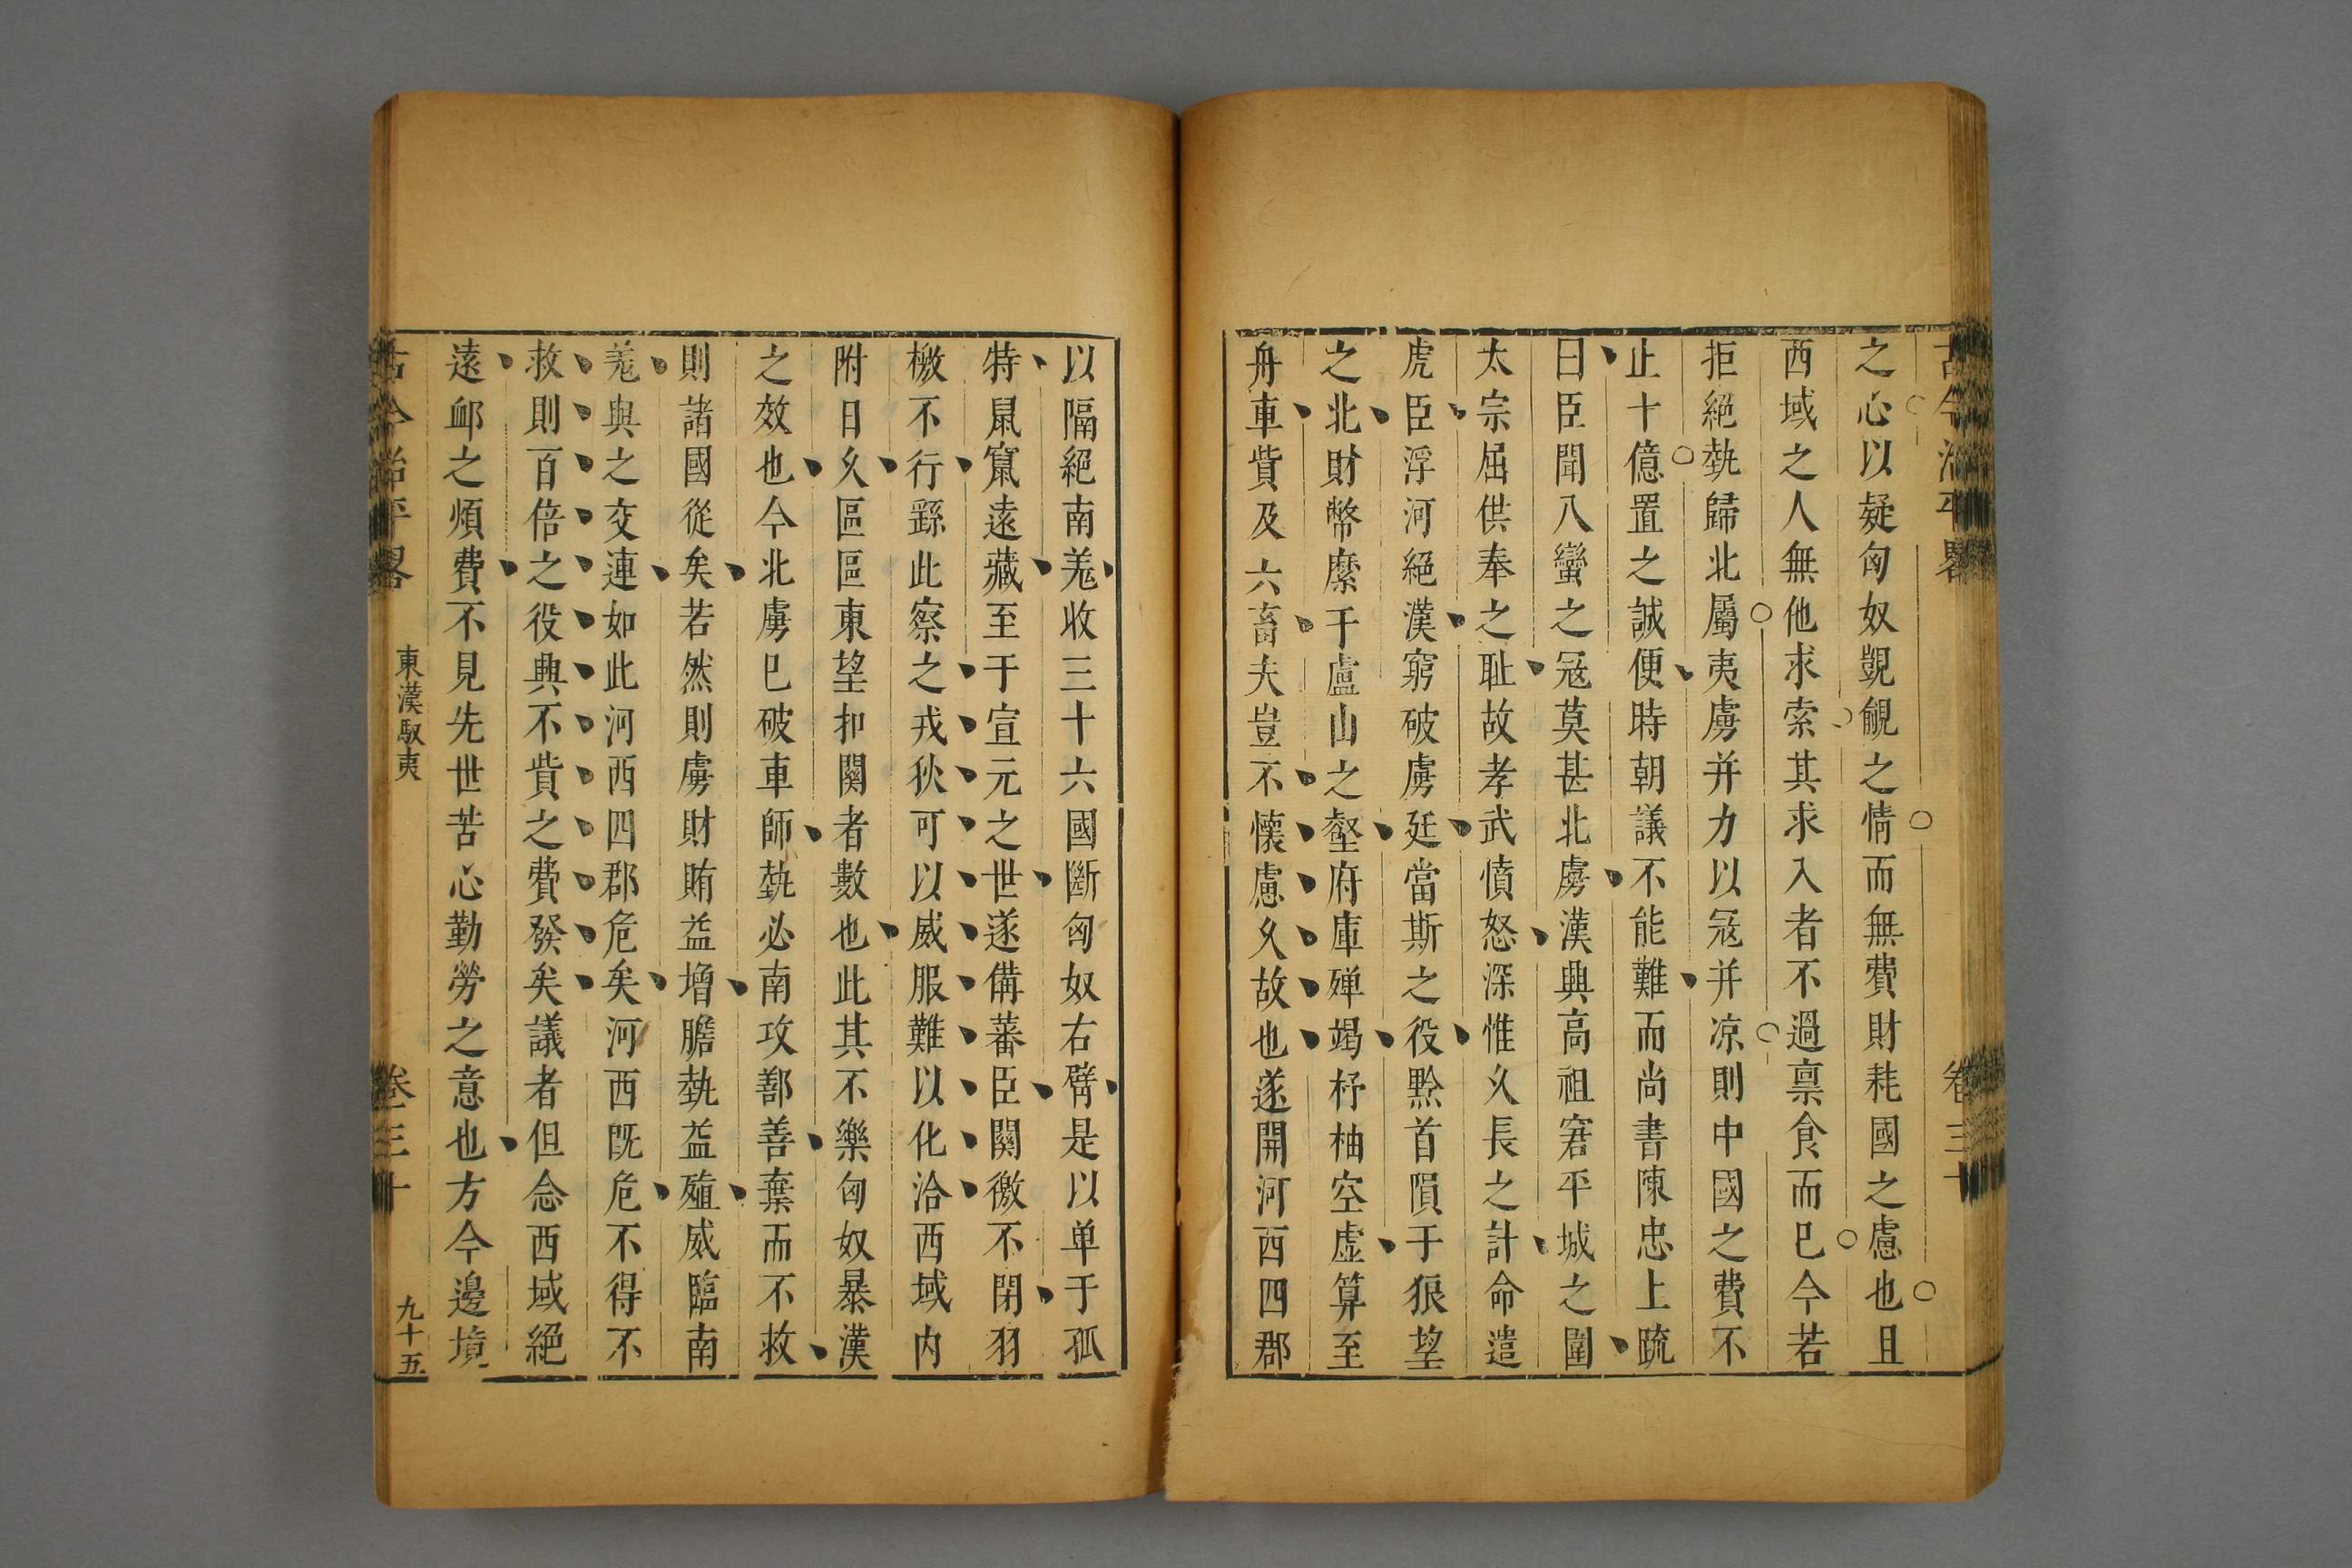 古今治平畧 卷三十
之心以疑匈奴覬覦之情而無費財耗國之慮也且
西域之人無他求索其求入者不過禀食而已今若
拒絕埶歸北屬夷虜并力以寇并凉則中國之費不
止十億置之誠便時朝議不能難而尚書陳忠上疏
曰臣聞八蠻之寇莫甚北虜漢興高祖窘平城之圍
太宗屈供奉之耻故孝武憤怒深惟久長之計命遣
虎臣浮河絕漠窮破虜廷當斯之役黔首隕于狼望
之北財幣縻于盧山之壑府庫殫竭杼柚空虛算至
舟車貲及六畜夫豈不懷慮久故也遂開河西四郡
以隔絕南羗收三十六國斷匈奴右臂是以单于孤
特鼠竄遠藏至于宣元之世遂備蕃臣關徼不閉羽
檄不行繇此察之戎狄可以威服難以化洽西域內
附日久區區東望扣關者數也此其不樂匈奴暴漢
之效也今北虜已破車師埶必南攻鄯善棄而不救
則諸國從矣若然則虜財賄益增膽埶益殖威臨南
羗與之交連如此河西四郡危矣河西既危不得不
救則百倍之役興不貲之費發矣議者但念西域絕
遠卹之煩費不見先世苦心勤勞之意也方今邊境
古今治平畧 東漢馭夷 卷三十 九十五